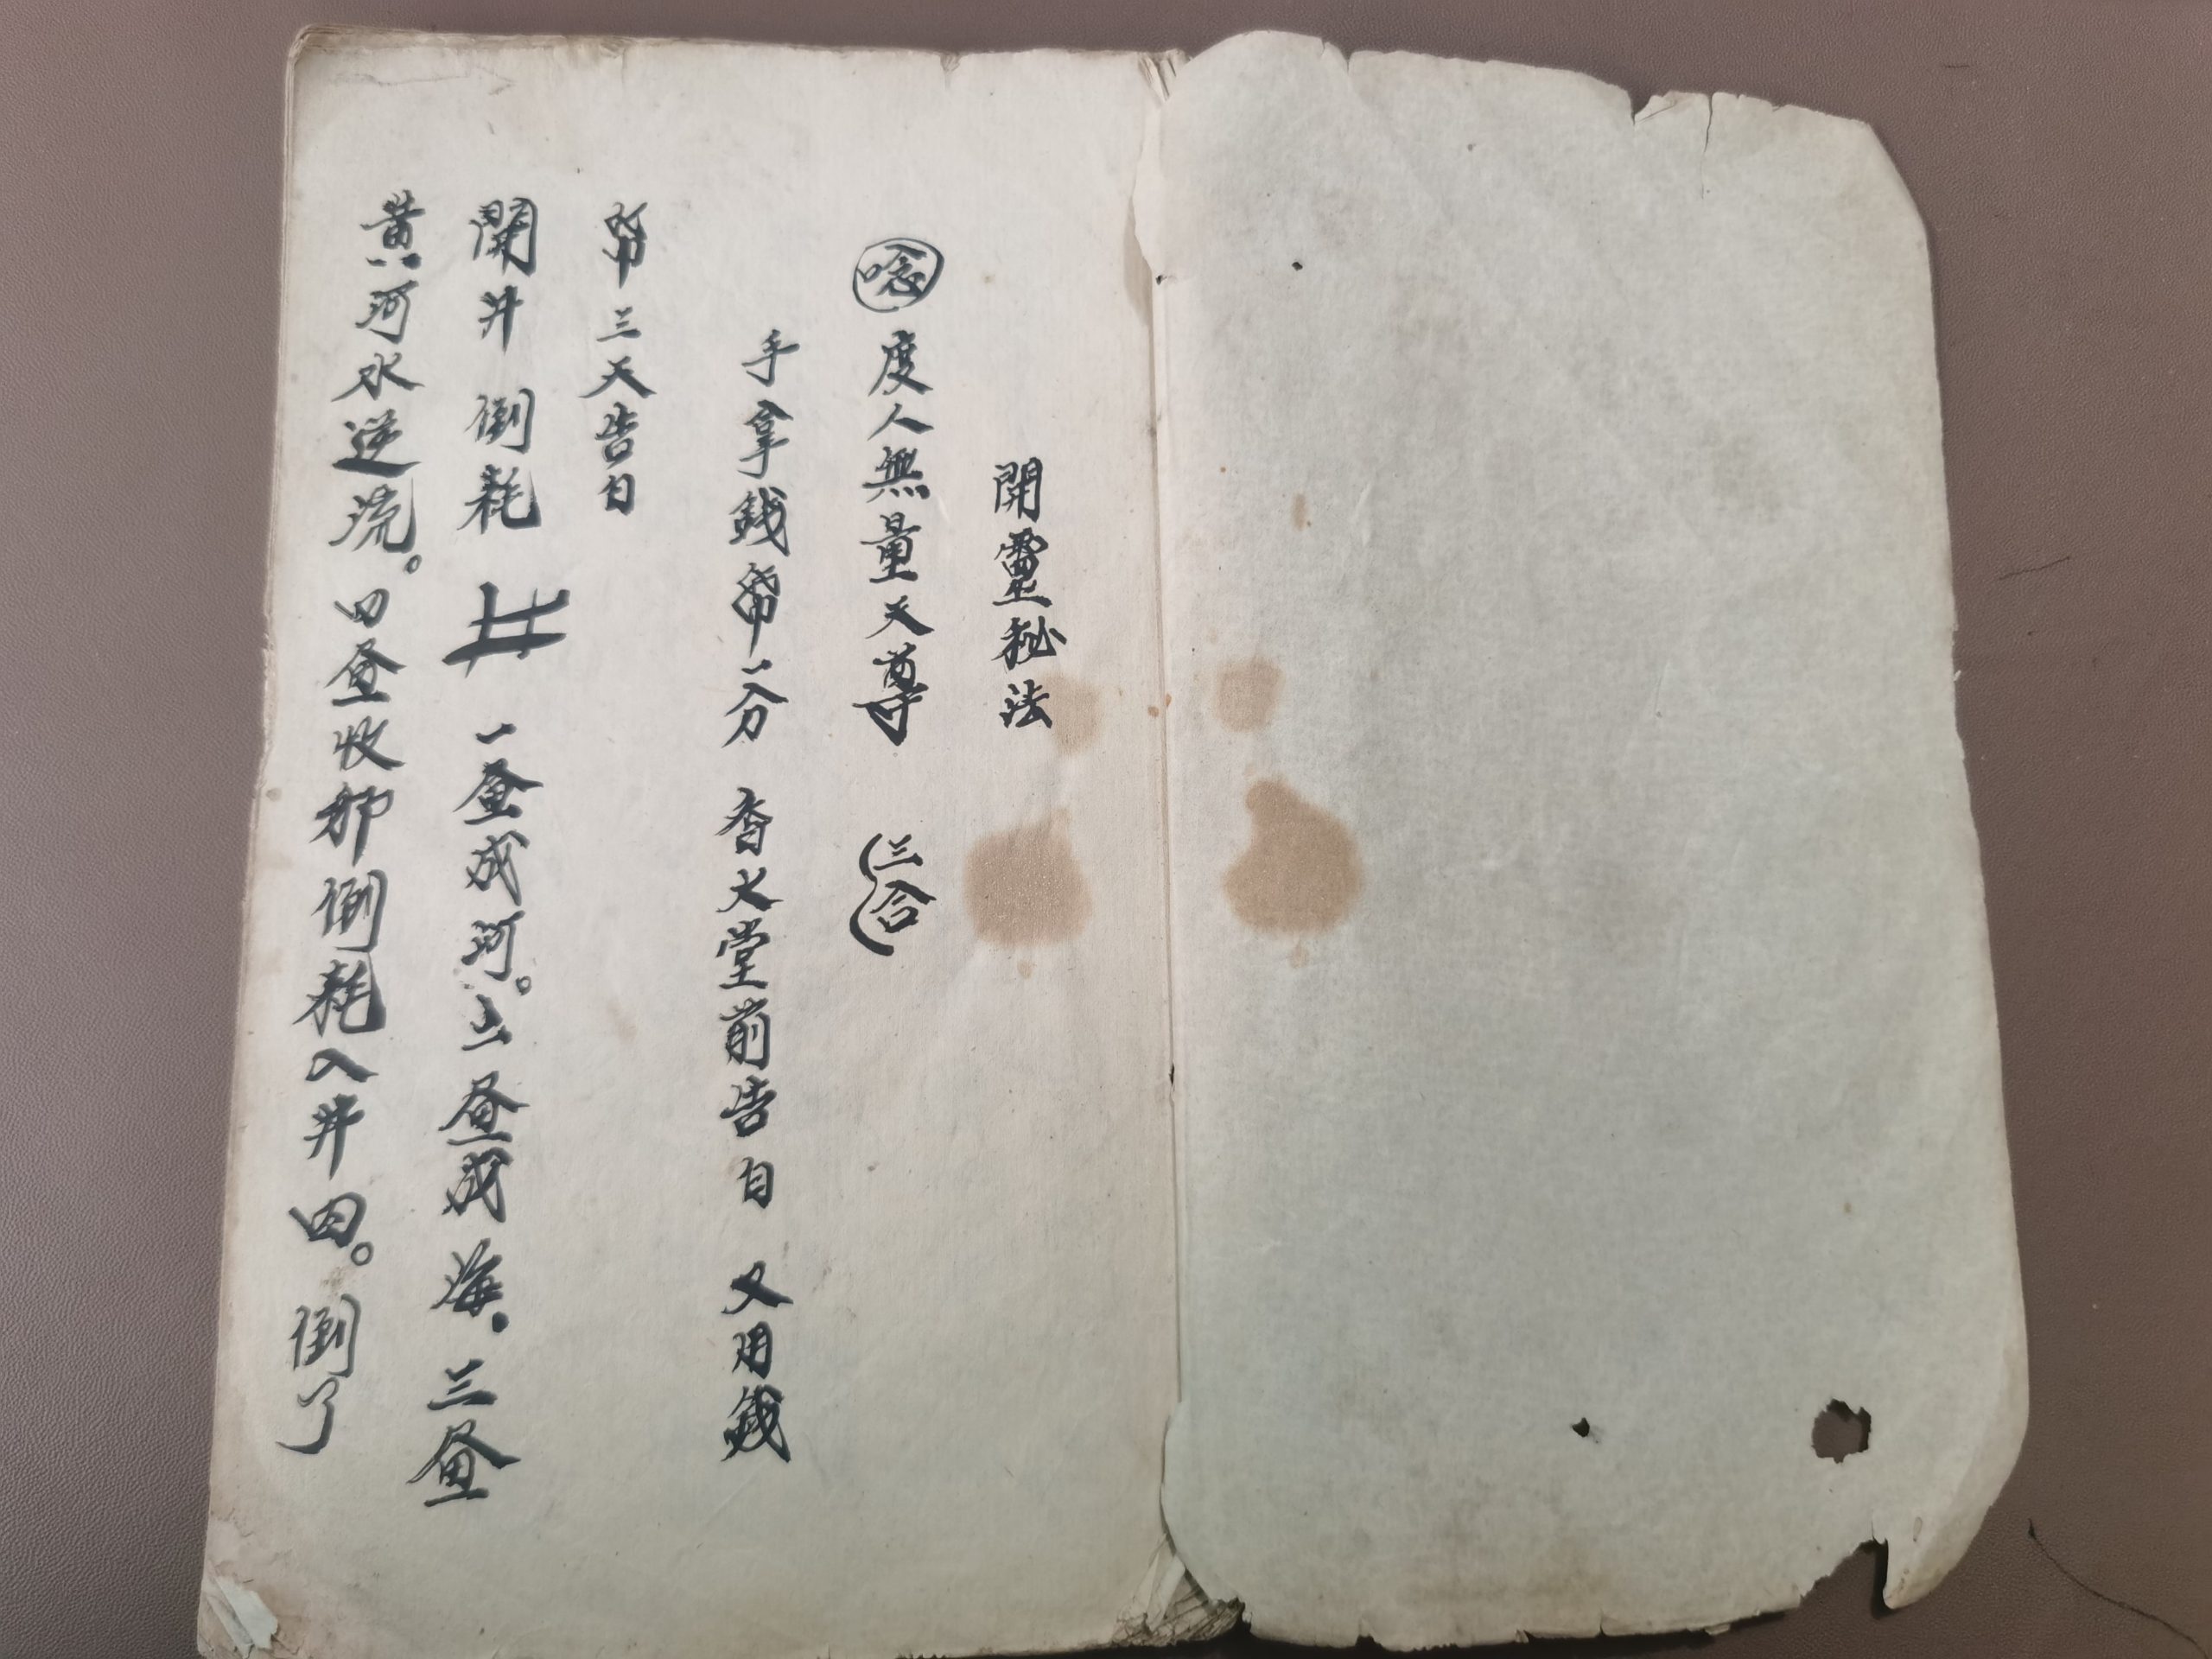 開靈秘法
唸 度人無量天尊 (三合)
手拿錢幣一分 香火堂前告白 又用錢
幣三天告白
開井 倒耗 井 一畫成河。二畫成海。三畫
黃河水逆流。四畫收邪倒耗入井内。倒了